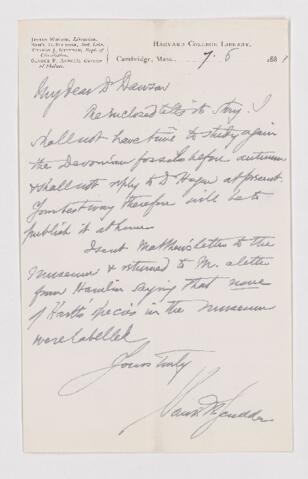 JUSTIN WINSOR, Librarian.
SAM'L H. SCUDDER, Ass't Libr.
HARVARD COLLEGE LIBRARY,
Cambridge, Mass., 7. 6 1881
My dear Dr Dawson
The enclosed tells its story. I
shall not have time to study again
the Devonian fossils before autumn
& shall not reply to Dr Hagen at present.
Your best way therefore will be to
publish it at home
I sent Matthew's letter to the
museum & returned to M. a letter
from Hamlin saying that none
of Hartt's species in the museum
were labelled
Yours truly
Sam. H. Scudder